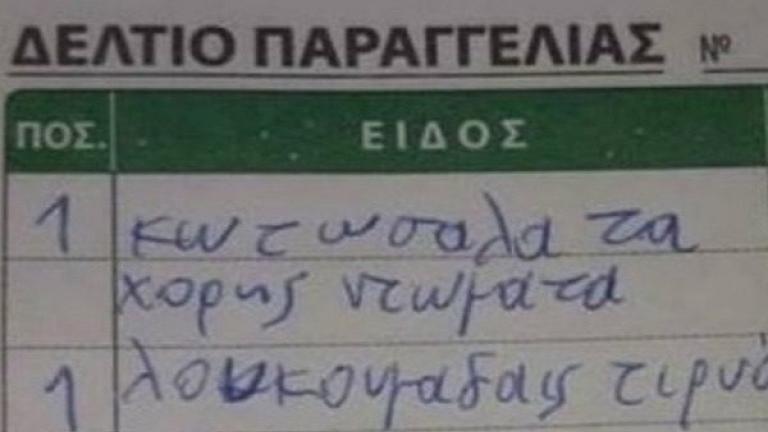 ΔΕΛΤΙΟ ΠΑΡΑΓΓΕΛΙΑΣ Νº
ΠΟΣ. ΕΙΔΟΣ
1 κωτωσαλατα
χορης ντωματα
1 λουκουμαδαις τιρυ